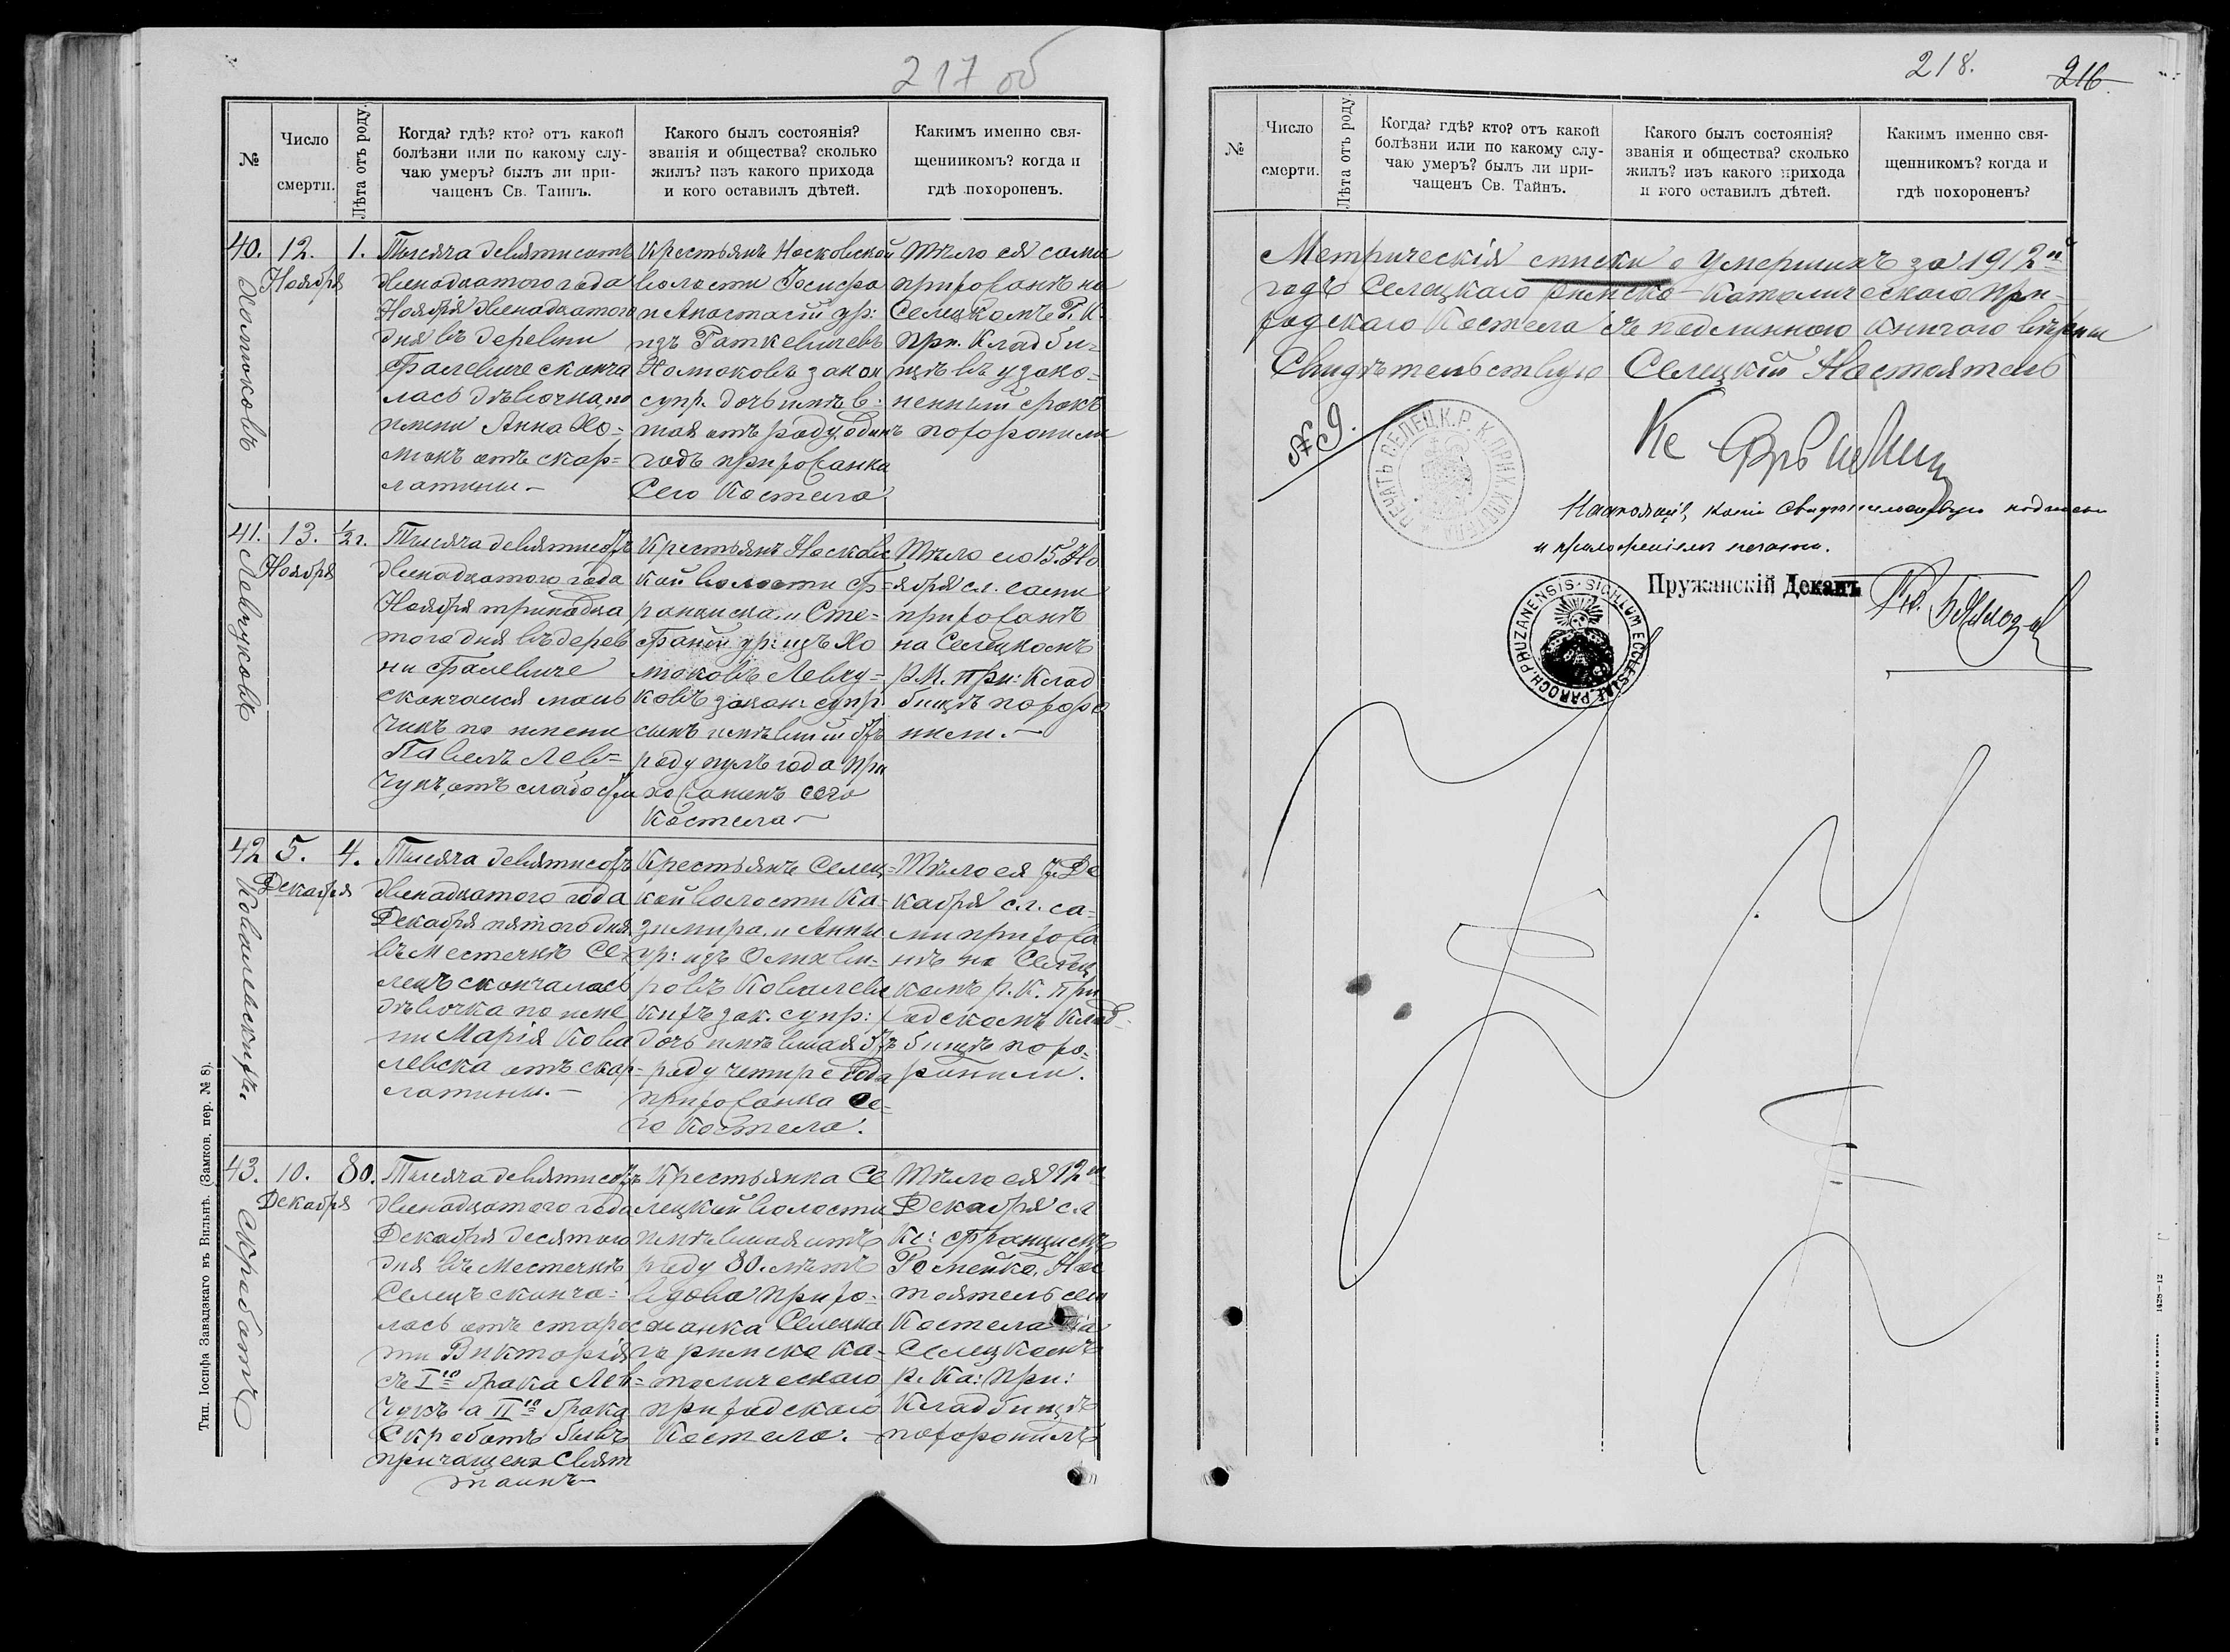 217 об
№
Число
смерти.
Лѣта отъ роду.
Когда? гдѣ? кто? отъ какой
болѣзни или по какому слу-
чаю умеръ? былъ ли при-
чащенъ Св. Таинъ.
Какого былъ состоянія?
званія и общества? сколько
жилъ? изъ какого прихода
и кого оставилъ дѣтей.
Какимъ именно свя-
щенникомъ? когда и
гдѣ похороненъ.
40.
Хомтоковъ
12.
Ноября
1.
Тысяча девятисотъ
двенадцатого года
Ноября двенадцатого
дня въ деревни
сконча
лась дѣвочка по
имени Анна Хо-
мтокъ отъ скар-
латины.—
Крестьянъ Носковской
волости Іосифа
и Анастасіи ур:
изъ Раткевичевъ
Хомтоковъ закон
супр. дочь имѣв-
шая отъ роду одинъ
годъ прихожанка
Сего Костела
Тѣло ея сами
прихожанѣ на
Селецкомъ Р. К.
При. Кладби-
щѣ въ узако-
ненный срокъ
похоронили
41.
Левчуковъ
13.
Ноября
1/2 г.
Тысяча девятисотъ
двенадцатого года
Ноября тринадца
того дня въ дерев
ни
скончался маль
чикъ по имени
Павелъ Лев-
чукъ, отъ слабости
Крестьянъ Носковс
кой волости Ф-
ранциска и Сте-
фаніи ур: изъ Хо
мтоковъ Левчу-
ковъ закон: супр
сынъ имѣвшій отъ
роду полъ года при
хожанинъ сего
Костела—
Тѣло его 15. Но
ября с.г. сами
прихожанѣ
на Селецкомъ
Р.К. При: Клад
бищѣ похоро
нили.—
42
Ковалевскихъ.
5.
Декабря
4.
Тысяча девятисотъ
двенадцатого года
Декабря пятого дня
въ Местечкѣ Се-
лецъ скончалась
дѣвочка по име
ни Марія Кова
левска отъ скар-
латины.—
Крестьянъ Селец-
кой волости Ка-
зимира и Анны
ур: изъ
Ковалевс
кихъ зак. супр:
дочь имѣвшая отъ
роду четыре года
прихожанка Се-
го Костела.
Тѣло ея 7. Де
кабря с.г. са-
ми прихожа
нѣ на Селец
комъ р. К. При
ходскомъ Клад-
бищѣ похо-
ронили.
43.
Скрабатъ
10.
Декабря
80.
Тысяча девятисотъ
двенадцатого года
Декабря десятого
дня въ Местечкѣ
Селецъ сконча-
лась отъ старос
ти Викторія
съ I го брака Лев-
чукъ а II го брака
Скрабатъ бывъ
причащена Свят
таинъ—
Крестьянка Се
лецкой волости
имѣвшая отъ
роду 80. лѣтъ
вдова прихо-
жанка Селецка
го римско ка-
толическаго
приходскаго
Костела.—
Тѣло ея 12 го
Декабря с.г
Кс: Францискъ
Ромейко, Нас
тоятель сего
Костела на
Селецкомъ
р. Ка: При:
Кладбищѣ
похоронилъ
Тип. Іосифа Завадзкаго въ Вильнѣ. (Замков. пер. № 8).
218.
216
№
Число
смерти.
Лѣта отъ роду.
Когда? гдѣ? кто? отъ какой
болѣзни или по какому слу-
чаю умеръ? былъ ли при-
чащенъ Св. Тайнъ.
Какого былъ состоянія?
званія и общества? сколько
жилъ? изъ какого прихода
и кого оставилъ дѣтей.
Какимъ именно свя-
щенникомъ? когда и
гдѣ похороненъ?
Метрическія списки о Умершихъ за 1912 й
годъ Селецкаго римско-католическаго при-
ходскаго Костела съ подлинною книгою вѣрны
Свидѣтельствую Селецкій Настоятель
№ 9.
ПЕЧАТЬ СЕЛЕЦК. Р. К. ПРИХ. КОСТЕЛА
Кс
копіи свидѣтельствую подписью
и приложеніемъ печати.
SIGILLUM ECCLESIAE PAROCH. PRUZANENSIS
Пружанскій Деканъ